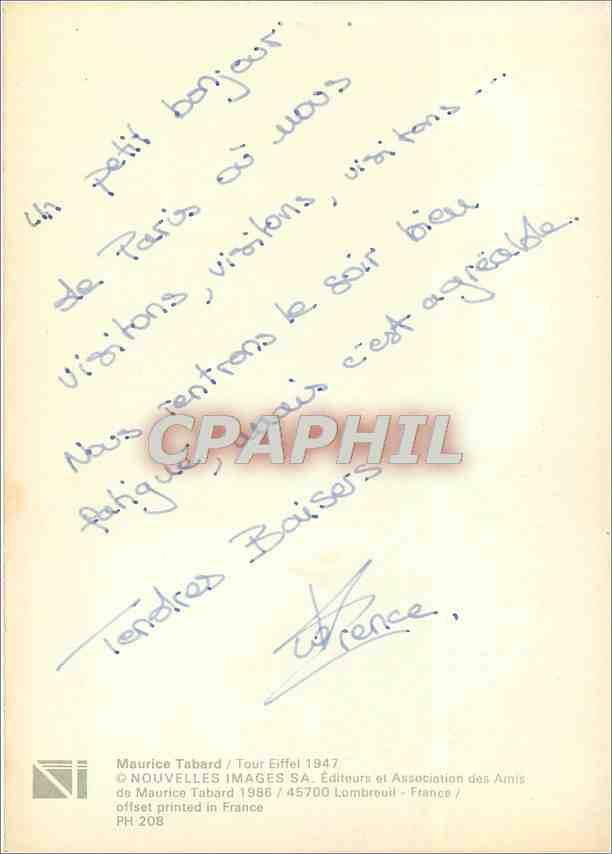 Un petit bonjour
de Paris où nous
visitons, visitons, visitons...
Nous rentrons le soir bien
fatigué, mais c'est agréable.
CPAPHIL
Tendres Baisers
Maurice Tabard / Tour Eiffel 1947
© NOUVELLES IMAGES SA. Éditeurs et Association des Amis
de Maurice Tabard 1986 / 45700 Lombreuil - France /
offset printed in France
PH 208